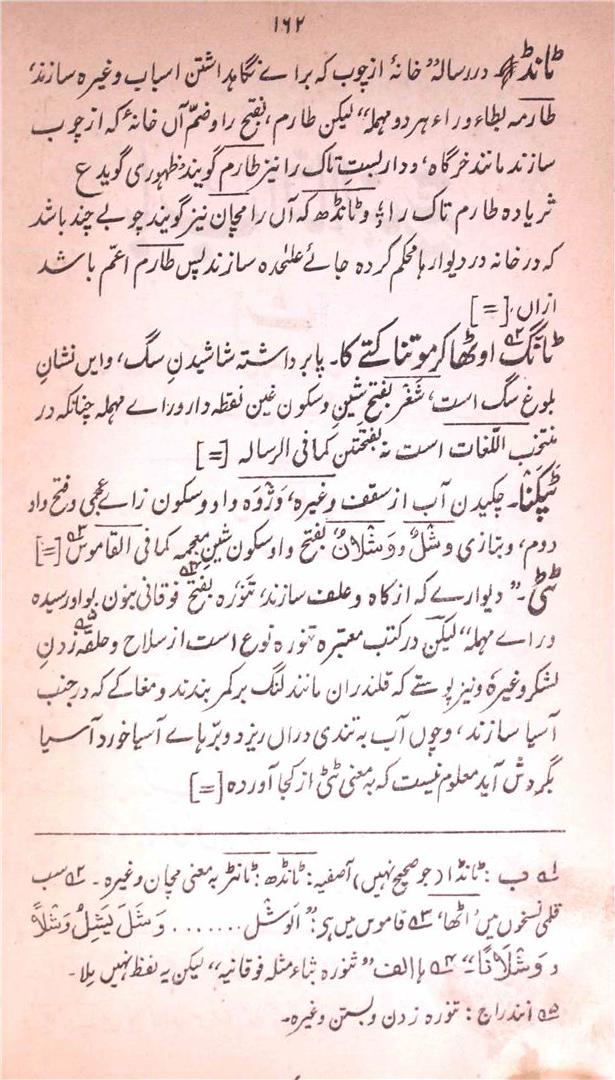 ۱۶۲
ٹانڈ در رسالہ "خانۂ از چوب کہ براے نگاہداشتن اسباب وغیرہ سازند،
طارمہ بطاء وراء ہر دو مہملہ" لیکن طارم، بفتح را وضمّ آں خانۂ کہ از چوب
سازند مانند خرگاہ، ودار بستِ تاک را نیز طارم گویند ظہوری گوید ع
ثریادہ طارم تاک را؛ وٹانڈھ کہ آں را مچان نیز گویند چوبے چند باشد
کہ در خانہ در دیوارہا محکم کردہ جائے علٰحدہ سازند پس طارم اعمّ باشد
ازاں، [=]
ٹانگ۲ اوٹھا کر موتنا کتے کا۔ پا برداشتہ شاشیدنِ سگ، وایں نشانِ
بلوغ سگ است، شَغْر بفتح شین وسکون غین نقطہ دار وراے مہملہ چنانکہ در
منتخب اللّغات است نہ بفتحتین کما فی الرسالہ [=]
ٹپکنا۔ چکیدن آب از سقف وغیرہ، وَژْوَہ واو وسکون زاے عجمی وفتح واو
دوم، وبتازی وشْلٌ ووَشْلانٌ بفتح واو سکون شین معجمہ کما فی القاموس۳ [=]
ٹٹی۔ "دیوارے کہ از کاہ وعلف سازند، تَنْورہ۴ بفتح فوقانی بنون بواو رسیدہ
وراے مہملہ" لیکن در کتب معتبرہ تنورہ نوع است از سلاح وحلقہ۵ زدنِ
لشکر وغیرہ ونیز پوستے کہ قلندران مانند لنگ بر کمر بندند ومغاکے کہ در جنب
آسیا سازند، وچوں آب بہ تندی دراں ریزد وبر پرہاے آسیا خورد آسیا
بگردش آید معلوم نیست کہ بہ معنی ٹٹی از کجا آوردہ [=]
۱؎ ب: ٹانڈا (جو صحیح نہیں) آصفیہ: ٹانڈھ: ٹانڈ بہ معنی مچان وغیرہ۔ ۲؎ سب
قلمی نسخوں میں 'اٹھا، ۳؎ قاموس میں ہی: "الوَشَل ....... وَشَلَ یَشِلُ وَشْلاً
و وَشَلَانًا"۔ ۴؎ ہا الف "تنورہ بثاء مثلہ فوقانیہ" لیکن یہ لفظ نہیں ملا۔
۵؎ انندراج: تنورہ زدن وبستن وغیرہ۔